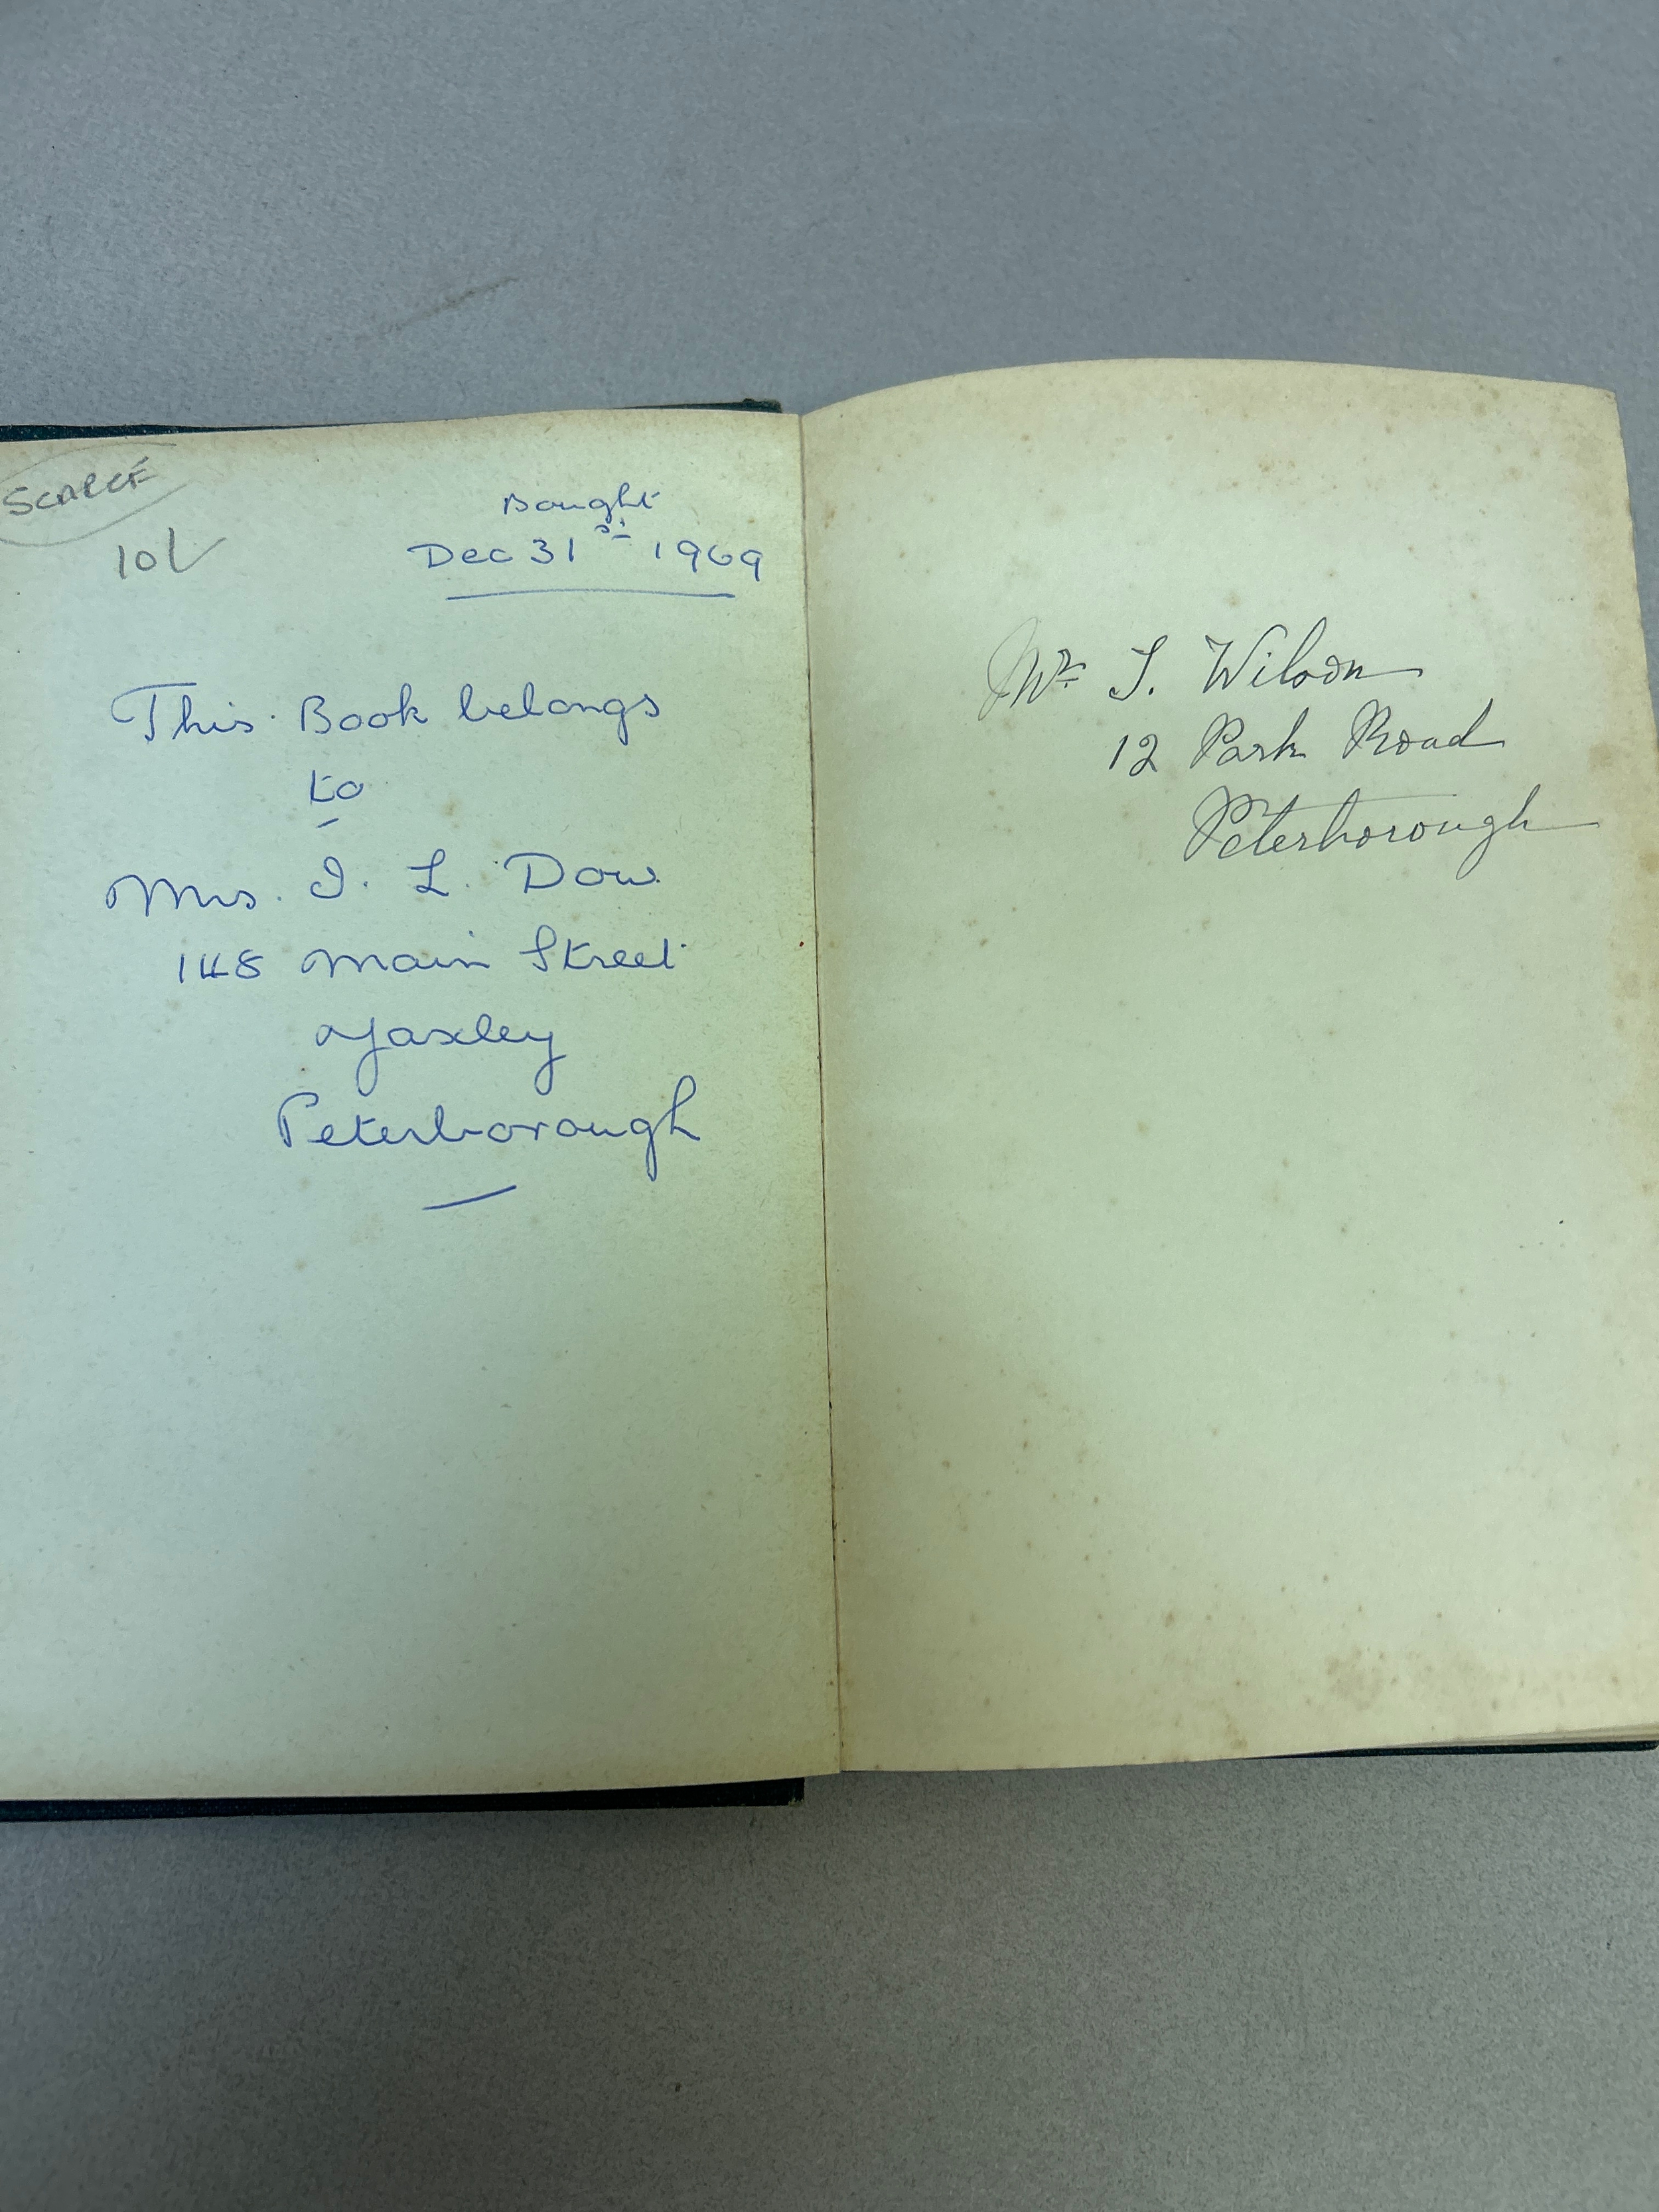 SCARCE
10/
Bought
Dec 31st 1969
This Book belongs
to
Mrs. I. L. Dow
148 Main Street
Yaxley
Peterborough
Mr J. Wilson
12 Park Road
Peterborough